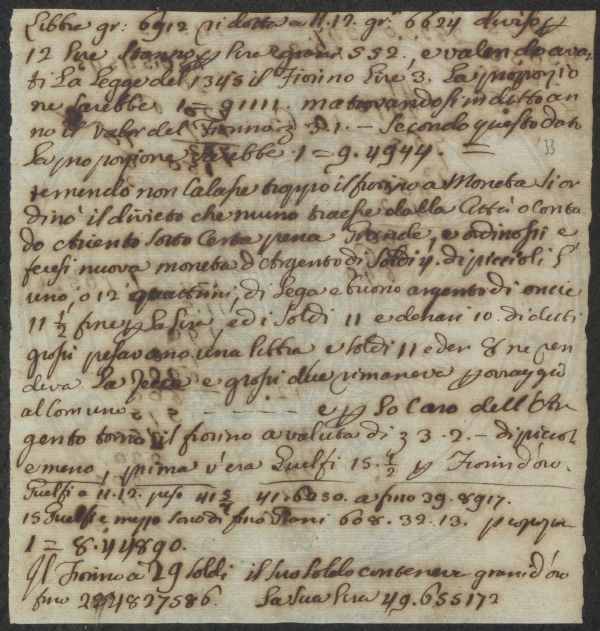 Libbre gr: 6912 ridotta a 11.12. gr. 6624 diviso p
12 lire Stanno p lire 2 grani 552, e valendo avan
ti La Legge del 1345 il Fiorino Lire 3. La proporzio
ne sarebbe 1 = 91111. ma trovandosi in detto an
no il valor del Fiorino 3. 1. — Secondo questo dato
La proporzione sarebbe 1 = 9. 4944. =
33
temendo non Calasse troppo il fiorino a Moneta si or
dinò il divieto che niuno traesse dalla Città o Conta
do Ariento sotto Certa pena Grande, e ordinossi e
fecesi nuova moneta d'Argento di Soldi 4. di piccioli L'
uno, o 12 quattrini, di Lega e buono argento di oncie
11 ½ fine p La Lira, ed i Soldi 11 e denari 10. di detti
grossi pesavano una libbra e soldi 11 e den 8 ne ren
deva La Zecca e grossi due rimaneva p ovraggio
al Comune - - - - e p Lo Caro dell'Ar
gento tornò il fiorino a valuta di 3. 2. — di piccioli
e meno, prima v'era Guelfi 15. ½ p Fiorin d'oro.
Guelfi a 11.12. peso 41 41. 6250. a fino 39. 8917.
15 Guelfi e mezzo sono di fino Grani 608. 32. 13. proporzione
1 = 8. 44890.
Il Fiorino a 29 soldi il suo soldo conteneva grani d'oro
fino 2 4827586. La sua Lira 49. 655172